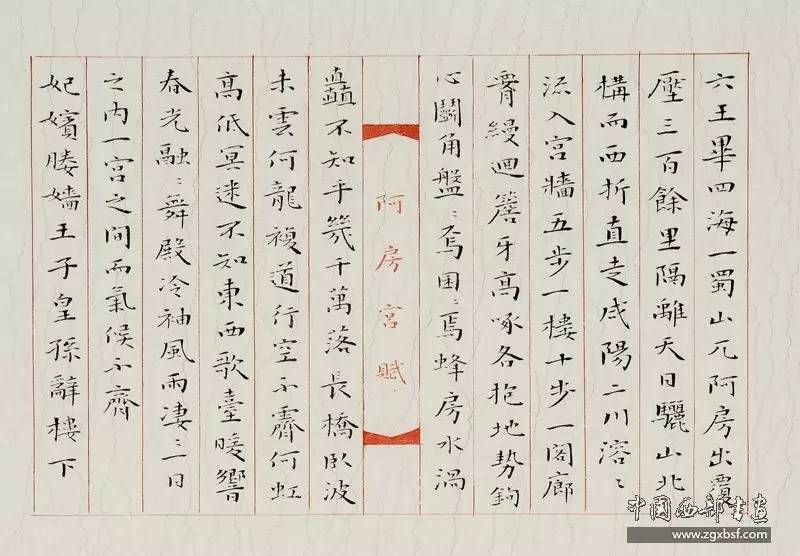 六王畢四海一蜀山兀阿房出覆
壓三百餘里隔離天日驪山北
構而西折直走咸陽二川溶〻
流入宮牆五步一樓十步一閣廊
腰縵迴簷牙高啄各抱地勢鉤
心鬭角盤〻焉囷〻焉蜂房水渦
阿房宮賦
矗不知乎幾千萬落長橋臥波
未雲何龍複道行空不霽何虹
高低冥迷不知東西歌臺暖響
春光融〻舞殿冷袖風雨凄〻一日
之內一宮之間而氣候不齊
妃嬪媵嬙王子皇孫辭樓下
中国西部书画
www.zgxbsf.com